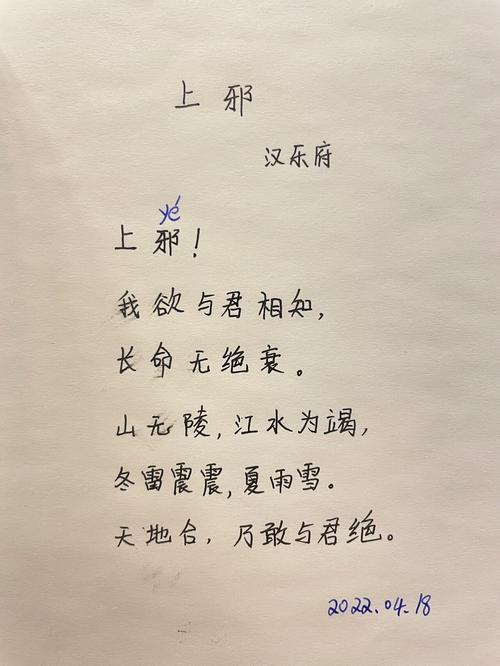 上邪
汉乐府
yé
上邪！
我欲与君相知，
长命无绝衰。
山无陵，江水为竭，
冬雷震震，夏雨雪。
天地合，乃敢与君绝。
2022.04.18